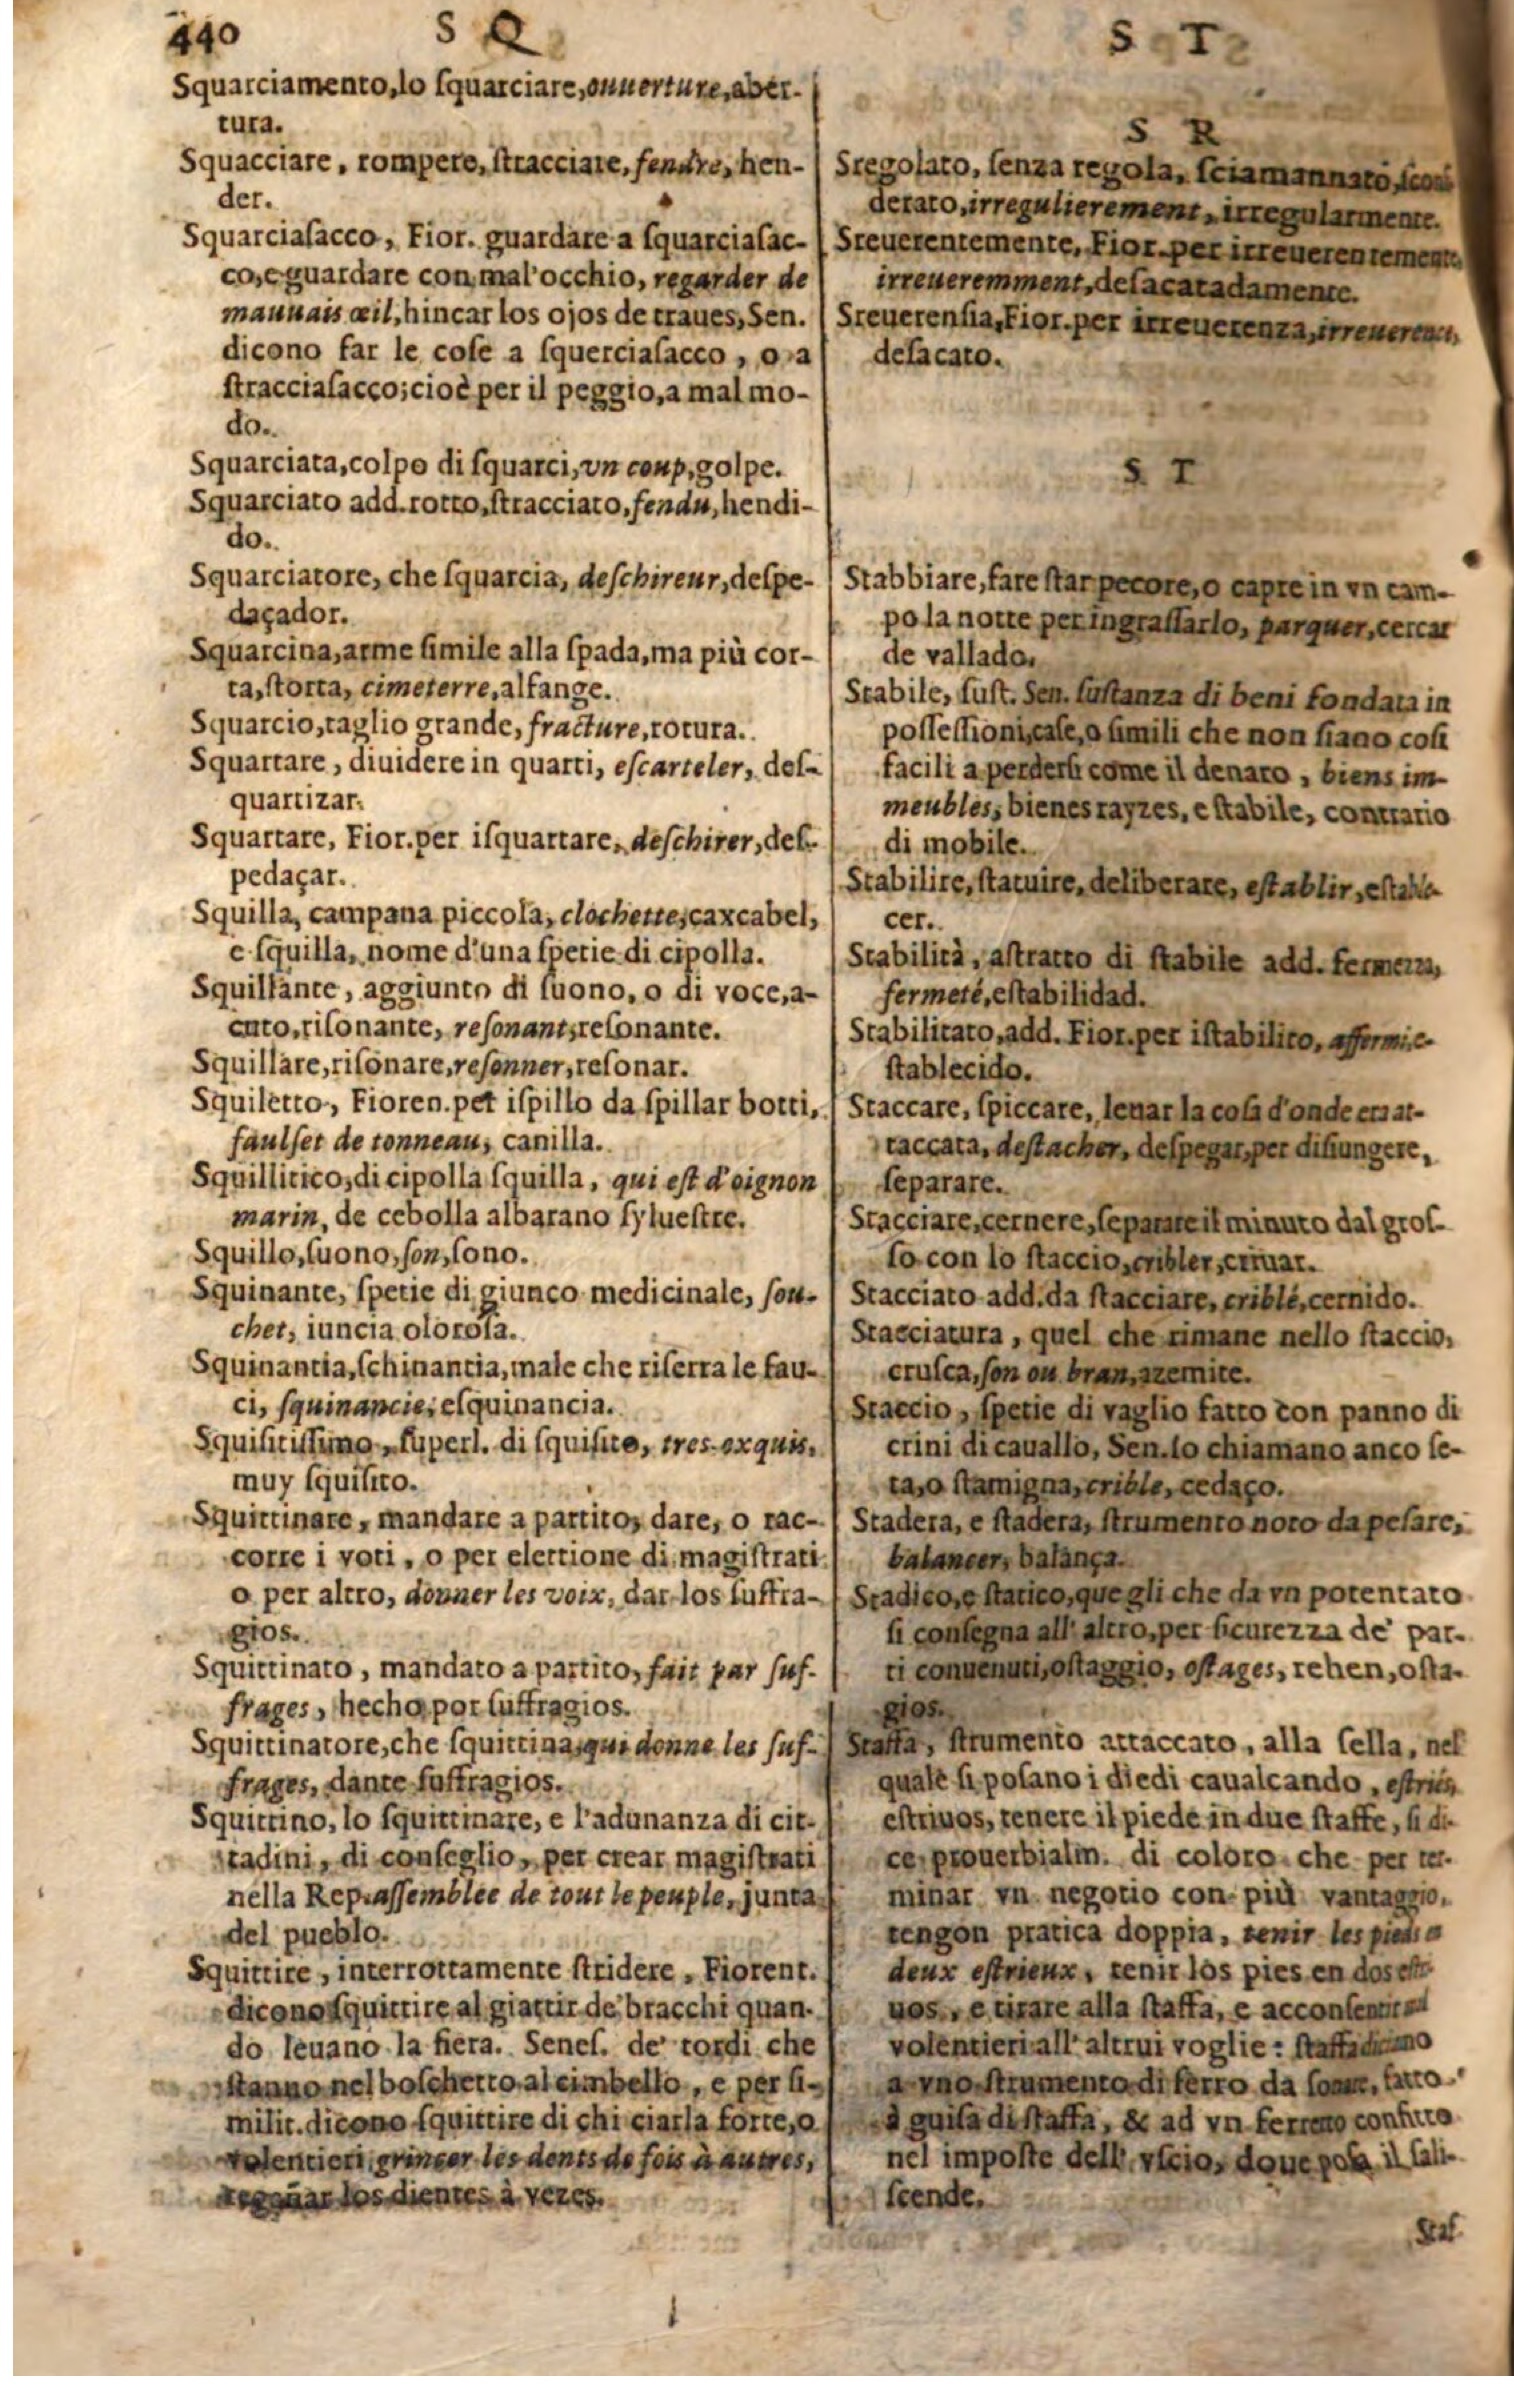 440 S Q
Squarciamento, lo ſquarciare, ouuerture, aber-
tura.
Squacciare, rompere, ſtracciare, fendre, hen-
der.
Squarciaſacco, Fior. guardare a ſquarciaſac-
co, e guardare con mal'occhio, regarder de
mauuais œil, hincar los ojos de traues, Sen.
dicono far le coſe a ſquerciaſacco, o a
ſtracciaſacco; cioè per il peggio, a mal mo-
do.
Squarciata, colpo di ſquarci, vn coup, golpe.
Squarciato add. rotto, ſtracciato, fendu, hendi-
do.
Squarciatore, che ſquarcia, deſchireur, deſpe-
daçador.
Squarcina, arme ſimile alla ſpada, ma più cor-
ta, ſtorta, cimeterre, alfange.
Squarcio, taglio grande, fracture, rotura.
Squartare, diuidere in quarti, eſcarteler, deſ-
quartizar.
Squartare, Fior. per iſquartare, deſchirer, deſ-
pedaçar.
Squilla, campana piccola, clochette, caxcabel,
e ſquilla, nome d'una ſpetie di cipolla.
Squillante, aggiunto di ſuono, o di voce, a-
cuto, riſonante, reſonant, reſonante.
Squillare, riſonare, reſonner, reſonar.
Squiletto, Fioren. per iſpillo da ſpillar botti,
faulſet de tonneau, canilla.
Squillitico, di cipolla ſquilla, qui eſt d'oignon
marin, de cebolla albarano ſylueſtre.
Squillo, ſuono, ſon, ſono.
Squinante, ſpetie di giunco medicinale, ſou-
chet, iuncia oloroſa.
Squinantia, ſchinantia, male che riſerra le fau-
ci, ſquinancie, eſquinancia.
Squiſitiſſimo, ſuperl. di ſquiſito, tres-exquis,
muy ſquiſito.
Squittinare, mandare a partito, dare, o rac-
corre i voti, o per elettione di magiſtrati
o per altro, donner les voix, dar los ſuffra-
gios.
Squittinato, mandato a partito, fait par ſuf-
frages, hecho por ſuffragios.
Squittinatore, che ſquittina, qui donne les ſuf-
frages, dante ſuffragios.
Squittino, lo ſquittinare, e l'adunanza di cit-
tadini, di conſeglio, per crear magiſtrati
nella Rep. aſſemblee de tout le peuple, junta
del pueblo.
Squittire, interrottamente ſtridere, Fiorent.
dicono ſquittire al giattir de' bracchi quan-
do leuano la fiera. Seneſ. de' tordi che
ſtanno nel boſchetto al cimbello, e per ſi-
milit. dicono ſquittire di chi ciarla forte, o
volentieri, grincer les dents de fois à autres,
regañar los dientes à vezes.
S T
S R
Sregolato, ſenza regola, ſciamannato,
derato, irregulierement, irregularmente.
Sreuerentemente, Fior. per irreuerentemente,
irreueremment, deſacatadamente.
Sreuerenſia, Fior. per irreuerenza, irreuerence,
deſacato.
S T
Stabbiare, fare ſtar pecore, o capre in vn cam-
po la notte per ingraſſarlo, parquer, cercar
de vallado.
Stabile, ſuſt. Sen. ſuſtanza di beni fondata in
poſſeſſioni, caſe, o ſimili che non ſiano coſi
facili a perderſi come il denaro, biens im-
meubles, bienes rayzes, e ſtabile, contrario
di mobile.
Stabilire, ſtatuire, deliberare, eſtablir, eſtable-
cer.
Stabilità, aſtratto di ſtabile add. fermezza,
fermeté, eſtabilidad.
Stabilitato, add. Fior. per iſtabilito, affermi, e-
ſtablecido.
Staccare, ſpiccare, leuar la coſa d'onde era at-
taccata, deſtacher, deſpegar, per diſiungere,
ſeparare.
Stacciare, cernere, ſeparare il minuto dal groſ-
ſo con lo ſtaccio, cribler, criuar.
Stacciato add. da ſtacciare, criblé, cernido.
Stacciatura, quel che rimane nello ſtaccio,
cruſca, ſon ou bran, azemite.
Staccio, ſpetie di vaglio fatto con panno di
crini di cauallo, Sen. lo chiamano anco ſe-
ta, o ſtamigna, crible, cedaço.
Stadera, e ſtadera, ſtrumento noto da peſare,
balancer, balança.
Stadico, e ſtatico, quegli che da vn potentato
ſi conſegna all' altro, per ſicurezza de' par-
ti conuenuti, oſtaggio, oſtages, rehen, oſta-
gios.
Staffa, ſtrumento attaccato, alla ſella, nel
quale ſi poſano i diedi caualcando, eſtriés,
eſtriuos, tenere il piede in due ſtaffe, ſi di-
ce prouerbialm. di coloro che per ter-
minar vn negotio con più vantaggio,
tengon pratica doppia, tenir les pieds a
deux eſtrieux, tenir los pies en dos eſtri-
uos, e tirare alla ſtaffa, e acconſentir
volentieri all' altrui voglie: ſtaffa dicono
a vno ſtrumento di ferro da ſonar, fatto
à guiſa di ſtaffa, & ad vn ferretto confitto
nel impoſte dell' vſcio, doue poſa il ſali-
ſcende.
Staf-